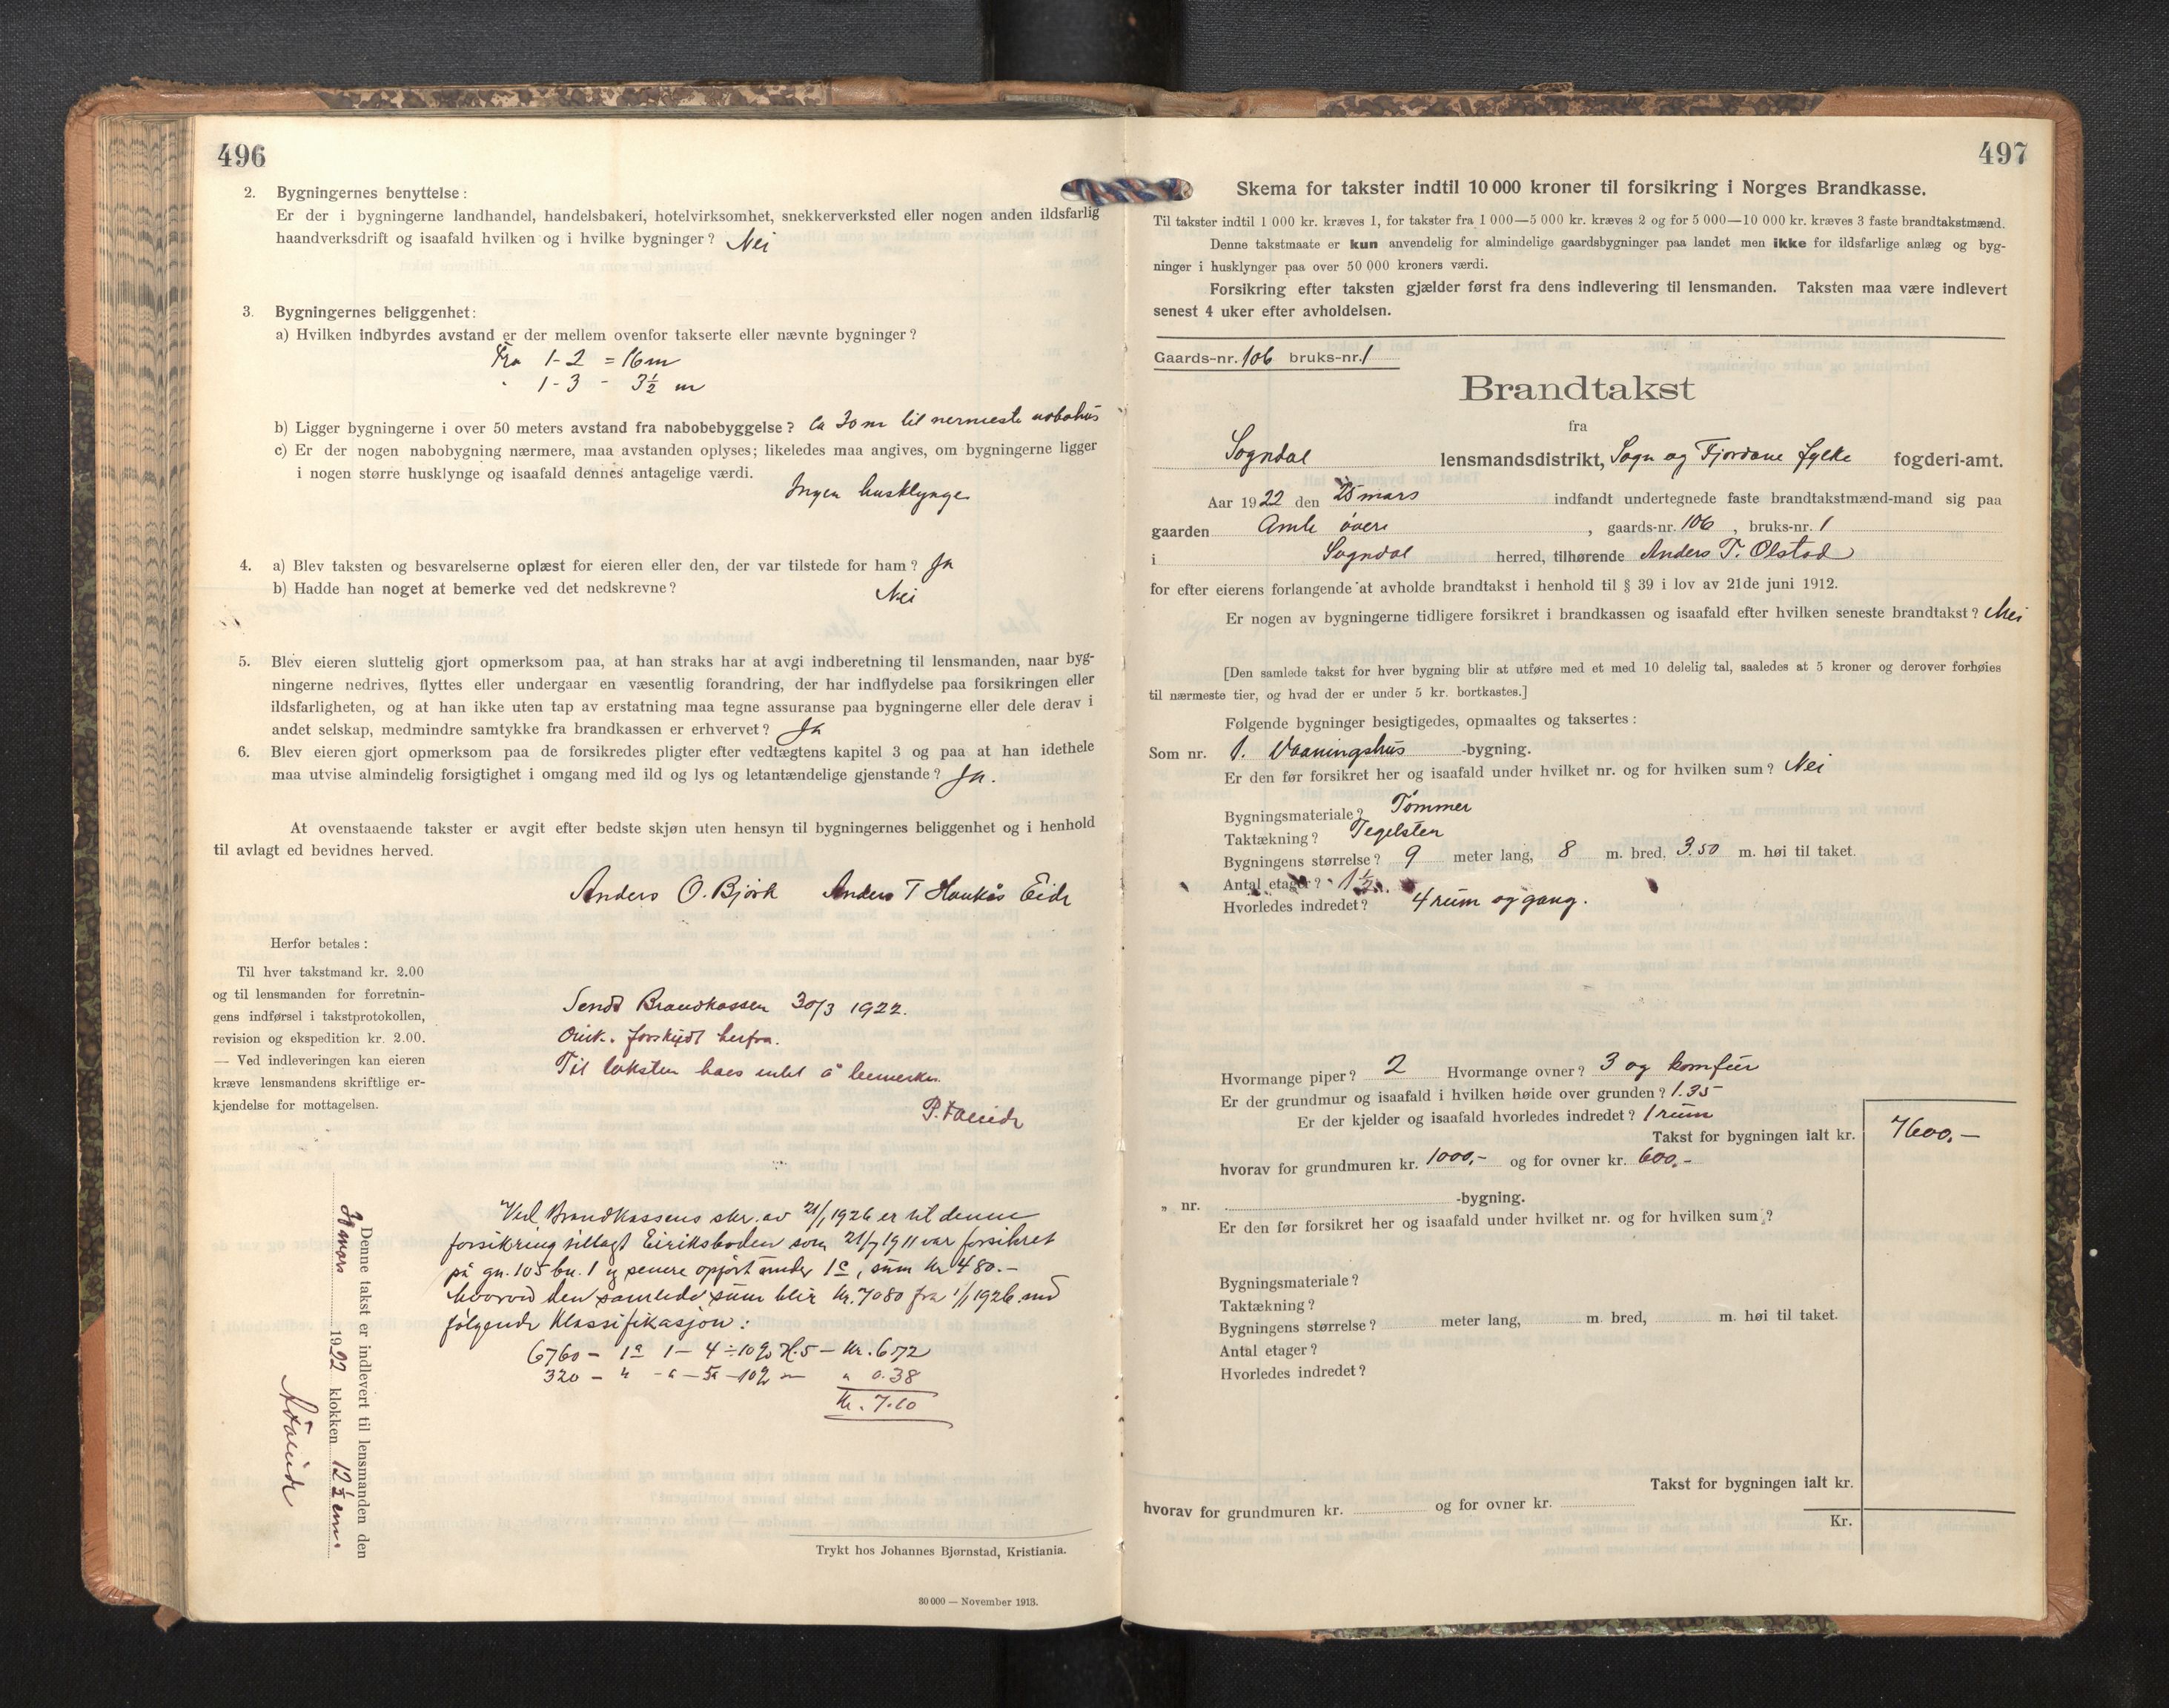 496
2. Bygningernes benyttelse:
Er der i bygningerne landhandel, handelsbakeri, hotelvirksomhet, snekkerverksted eller nogen anden ildsfarlig
haandverksdrift og isaafald hvilken og i hvilke bygninger? Nei
3. Bygningernes beliggenhet:
a) Hvilken indbyrdes avstand er der mellem ovenfor takserte eller nævnte bygninger?
Fra 1-2 = 16 m
" 1-3 - 3½ m
b) Ligger bygningerne i over 50 meters avstand fra nabobebyggelse? ca 30 m til nermeste nabohus
c) Er der nogen nabobygning nærmere, maa avstanden oplyses; likeledes maa angives, om bygningerne ligger
i nogen større husklynge og isaafald dennes antagelige værdi.
Ingen husklynge
4. a) Blev taksten og besvarelserne oplæst for eieren eller den, der var tilstede for ham? Ja
b) Hadde han noget at bemerke ved det nedskrevne? Nei
5. Blev eieren sluttelig gjort opmerksom paa, at han straks har at avgi indberetning til lensmanden, naar byg-
ningerne nedrives, flyttes eller undergaar en væsentlig forandring, der har indflydelse paa forsikringen eller
ildsfarligheten, og at han ikke uten tap av erstatning maa tegne assuranse paa bygningerne eller dele derav i
andet selskap, medmindre samtykke fra brandkassen er erhvervet? Ja
6. Blev eieren gjort opmerksom paa de forsikredes pligter efter vedtægtens kapitel 3 og paa at han idethele
maa utvise almindelig forsigtighet i omgang med ild og lys og letantændelige gjenstande? Ja.
At ovenstaaende takster er avgit efter bedste skjøn uten hensyn til bygningernes beliggenhet og i henhold
til avlagt ed bevidnes herved.
Anders O. Bjørk Anders T Haukås Eide
Herfor betales:
Til hver takstmand kr. 2.00
og til lensmanden for forretnin-
gens indførsel i takstprotokollen,
revision og ekspedition kr. 2.00.
— Ved indleveringen kan eieren
kræve lensmandens skriftlige er-
kjendelse for mottagelsen.
Sendt Brandkassen 30/3 1922.
forskudt herfra.
Til taksten haes intet å bemerke.
Ved Brandkassens skr. av 21/1 1926 er til denne
forsikring tillagt Eiriksboden som 21/7 1911 var forsikret
på gn. 105 bn. 1 og senere opført under 1c, sum kr 480.-
hvorved den samlede sum blir kr. 7080 fra 1/1 1926 med
følgende Klassifikasjon:
6760 - 1a 1 - 4 ÷ 10% H.5 - kr. 6.72
320 - " - " - 5a - 10% - " 0.38
kr. 7.10
Denne takst er indlevert til lensmanden den
30 mars 1922 klokken 12½ em.
Trykt hos Johannes Bjørnstad, Kristiania.
30 000 — November 1913.
497
Skema for takster indtil 10 000 kroner til forsikring i Norges Brandkasse.
Til takster indtil 1 000 kr. kræves 1, for takster fra 1 000—5 000 kr. kræves 2 og for 5 000—10 000 kr. kræves 3 faste brandtakstmænd.
Denne takstmaate er kun anvendelig for almindelige gaardsbygninger paa landet men ikke for ildsfarlige anlæg og byg-
ninger i husklynger paa over 50 000 kroners værdi.
Forsikring efter taksten gjælder først fra dens indlevering til lensmanden. Taksten maa være indlevert
senest 4 uker efter avholdelsen.
Gaards-nr. 106 bruks-nr. 1
Brandtakst
fra
Sogndal lensmandsdistrikt, Sogn og Fjordane fylke fogderi-amt.
Aar 1922 den 25 mars indfandt undertegnede faste brandtakstmænd-mand sig paa
gaarden Amle øvere, gaards-nr. 106, bruks-nr. 1
i Sogndal herred, tilhørende Anders T. Olstad
for efter eierens forlangende at avholde brandtakst i henhold til § 39 i lov av 21de juni 1912.
Er nogen av bygningerne tidligere forsikret i brandkassen og isaafald efter hvilken seneste brandtakst? Nei
[Den samlede takst for hver bygning blir at utføre med et med 10 delelig tal, saaledes at 5 kroner og derover forhøies
til nærmeste tier, og hvad der er under 5 kr. bortkastes.]
Følgende bygninger besigtigedes, opmaaltes og taksertes:
Som nr. 1. Vaaningshus -bygning.
Er den før forsikret her og isaafald under hvilket nr. og for hvilken sum? Nei
Bygningsmateriale? Tømmer
Taktækning? Tegelsten
Bygningens størrelse? 9 meter lang, 8 m. bred, 3.50 m. høi til taket.
Antal etager? 1½.
Hvorledes indredet? 4 rum og gang.
Hvormange piper? 2 Hvormange ovner? 3 og komfur
Er der grundmur og isaafald i hvilken høide over grunden? 1.35
Er der kjelder og isaafald hvorledes indredet? 1 rum
Takst for bygningen ialt kr. 7600,—
hvorav for grundmuren kr. 1000,- og for ovner kr. 600,-
„ nr. -bygning.
Er den før forsikret her og isaafald under hvilket nr. og for hvilken sum?
Bygningsmateriale?
Taktækning?
Bygningens størrelse? meter lang, m. bred, m. høi til taket.
Antal etager?
Hvorledes indredet?
Takst for bygningen ialt kr.
hvorav for grundmuren kr. og for ovner kr.
Kr.